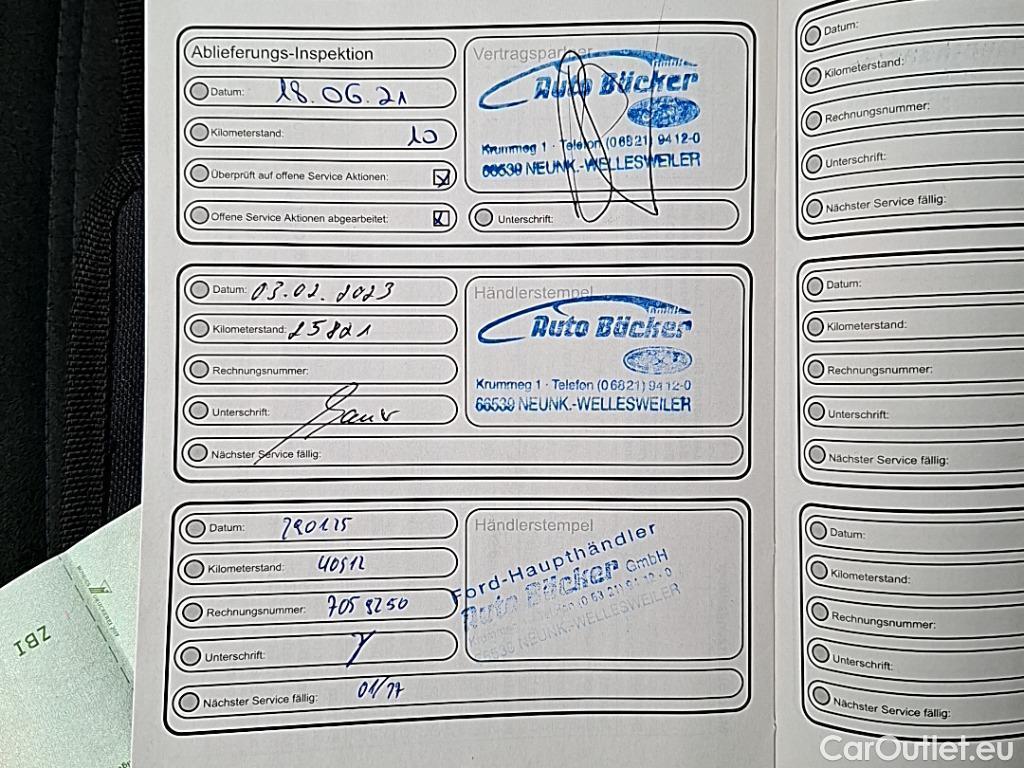 Ablieferungs-Inspektion
Datum: 18.06.21
Kilometerstand: 10
Überprüft auf offene Service Aktionen:
Offene Service Aktionen abgearbeitet:
Vertragspartner
Auto Bücker
Krummeg 1 · Telefon (06821) 9412-0
66539 NEUNK.-WELLESWEILER
Unterschrift:
Datum: 03.02.2023
Kilometerstand: 25821
Rechnungsnummer:
Unterschrift:
Nächster Service fällig:
Händlerstempel
Auto Bücker
Krummeg 1 · Telefon (06821) 9412-0
66539 NEUNK.-WELLESWEILER
Datum: 290125
Kilometerstand: 40912
Rechnungsnummer: 7058250
Unterschrift:
Nächster Service fällig: 01/27
Händlerstempel
Ford-Haupthändler
Auto Bücker GmbH
66539 NEUNK.-WELLESWEILER
Datum:
Kilometerstand:
Rechnungsnummer:
Unterschrift:
Nächster Service fällig:
Datum:
Kilometerstand:
Rechnungsnummer:
Unterschrift:
Nächster Service fällig:
Datum:
Kilometerstand:
Rechnungsnummer:
Unterschrift:
Nächster Service fällig:
ZBI
CarOutlet.eu